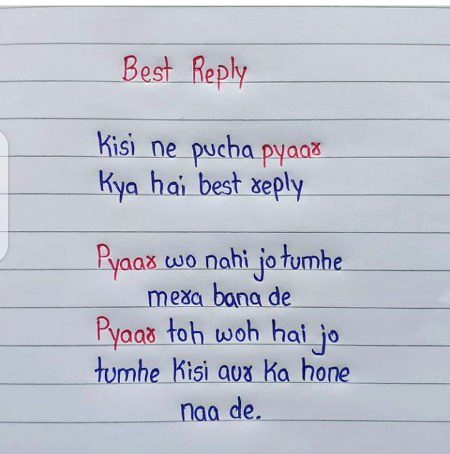 Best Reply
Kisi ne pucha pyaar
Kya hai best reply
Pyaar wo nahi jo tumhe
mera bana de
Pyaar toh woh hai jo
tumhe kisi aur ka hone
naa de.